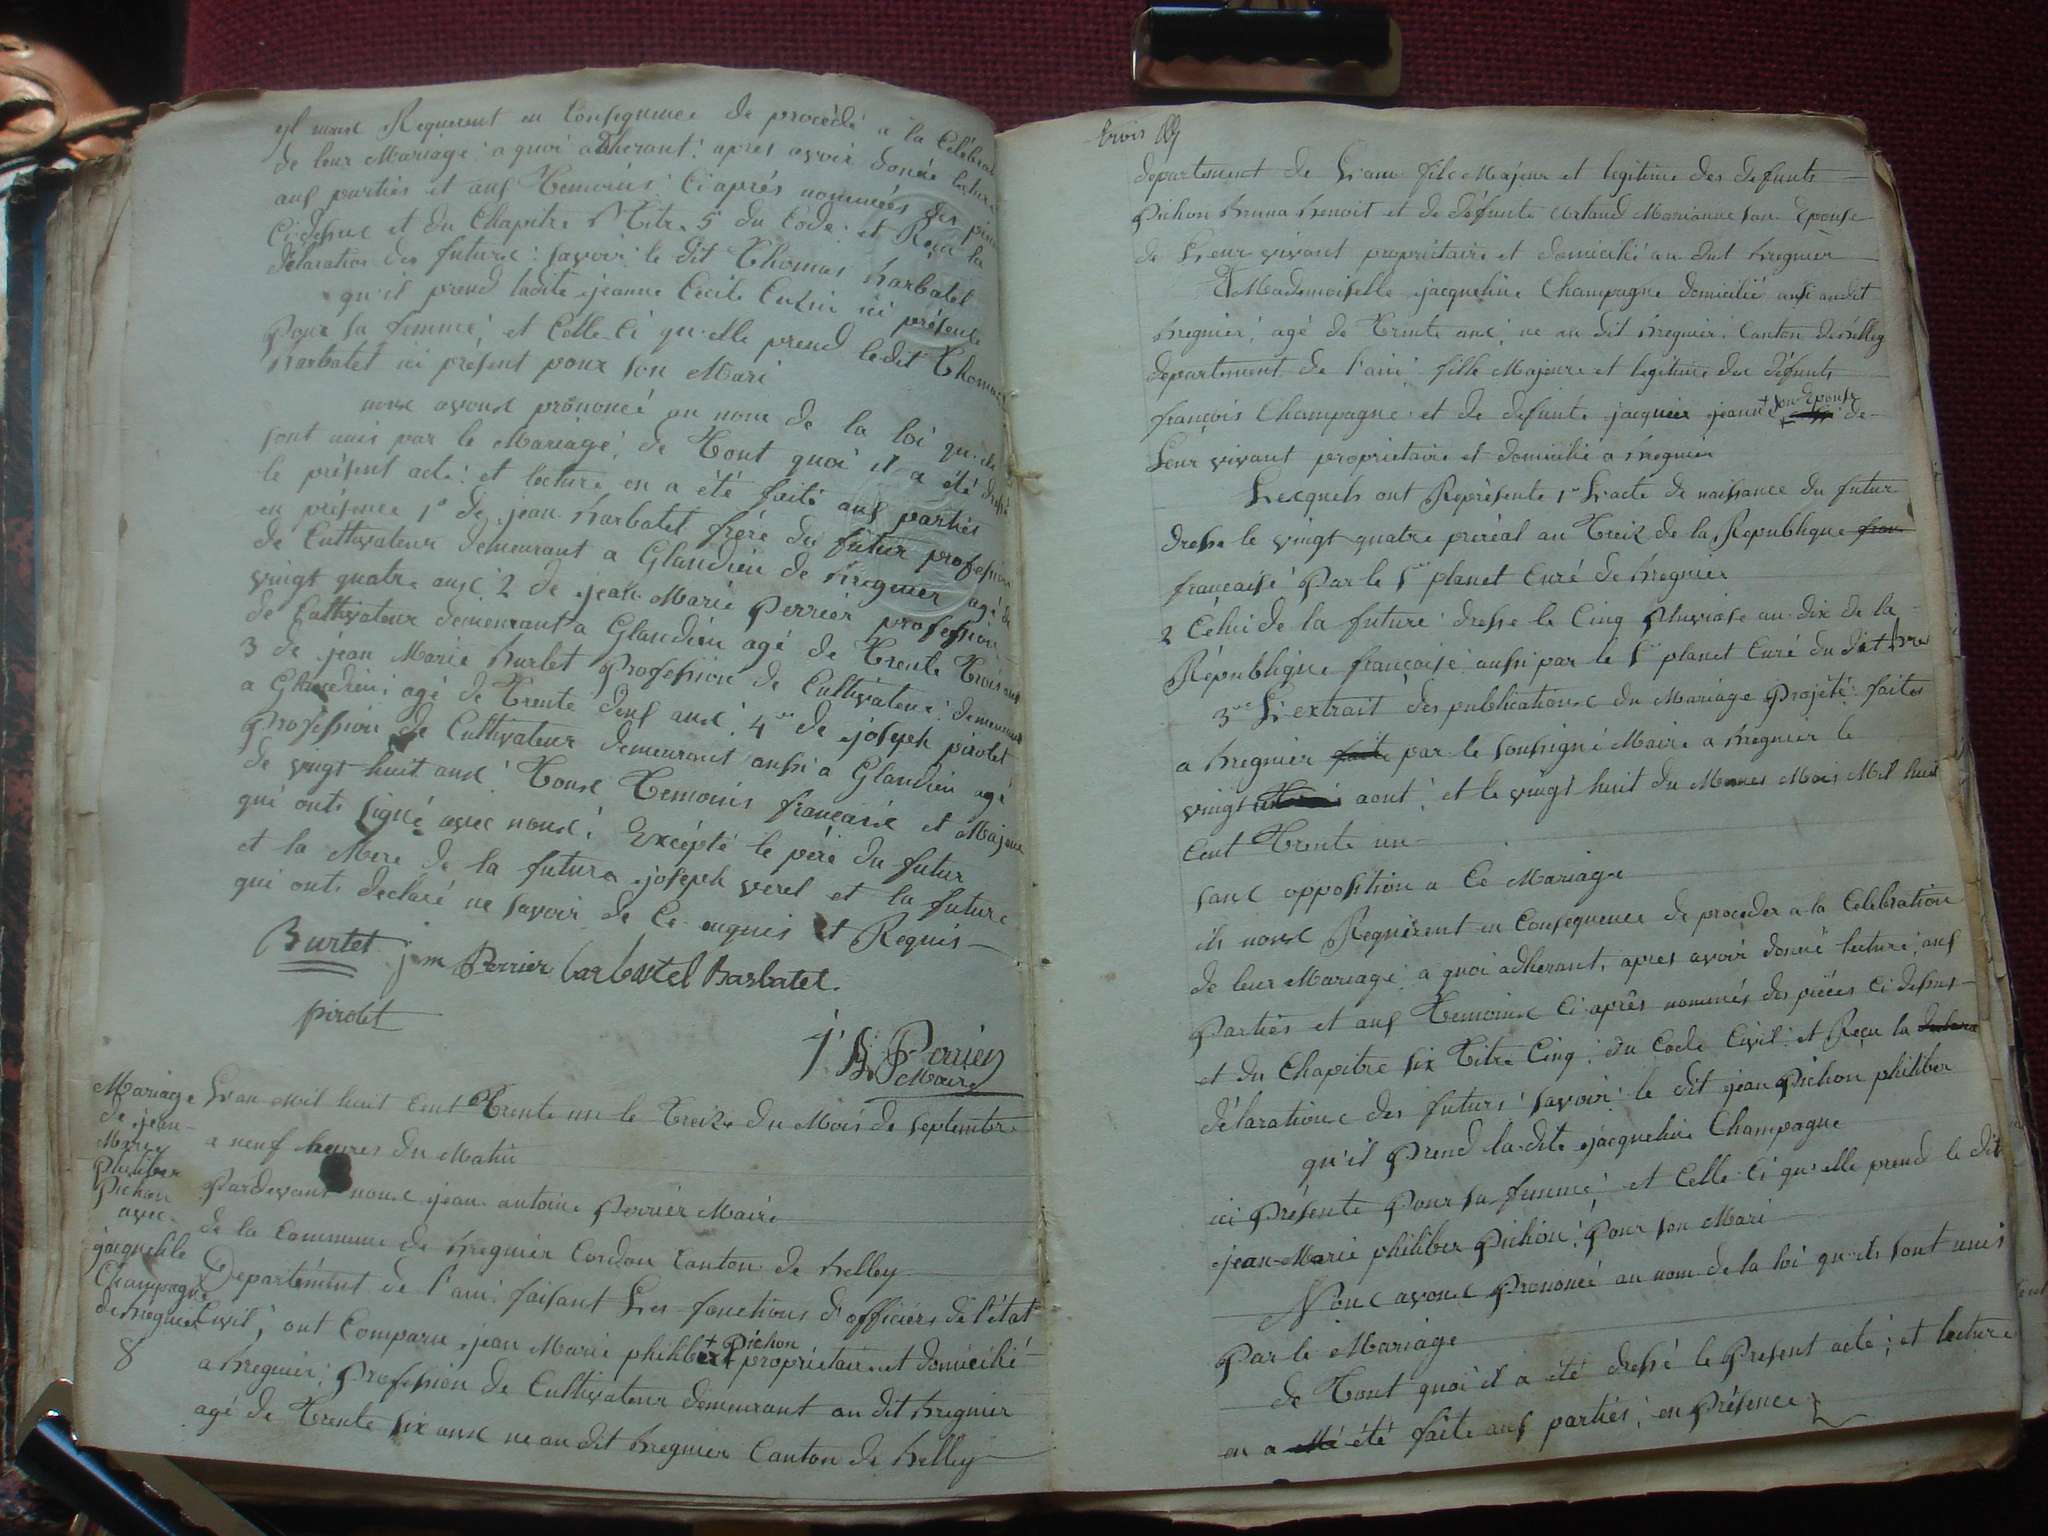 yl nous Requerent en Consequence de procédé a la Célébrat
de leur Mariage: a quoi adherant: apres avoir donné lecture
aux parties et aux Temoins: Ci après nommées des pièces
Ci dessus et du Chapitre Titre 5 du Code: et Reçu la
déclaration des futurs: savoir: le dit Thomas Barbatel
qu'il prend ladite jeanne Cécile ici présente
Pour sa femme; et Celle-Ci qu'elle prend ledit Thomas
Barbatel ici présent pour son Mari
nous avons prononcé au nom de la loi qu'ils
sont unis par le Mariage; de Tout quoi il a été dressé
le présent acte: et lecture en a été faite aux parties
en présence 1° de jean Barbatel frére du futur profession
de Cultivateur demeurant a Glandieu de Bregnier agé de
vingt quatre ans: 2 de jean Marie Perrier profession
de Cultivateur demeurant a Glandieu agé de Trente Trois ans
3 de jean Marie Burlet Profession de Cultivateur: demeurant
a Glandieu: agé de Trente deux ans: 4 de joseph pirolet
Profession de Cultivateur demeurant aussi a Glandieu agé
de vingt huit ans: Tous Temoins français et Majeur
qui onts signé avec nous: Excépté le pére du futur
et la Mere de la future joseph verel et la future
qui onts declaré ne savoir de Ce enquis et Requis
Burlet j m Perrier barbatel Barbatel
pirolet
Perrier
Maire
Mariage
de jean
Marie
Philiber
Pichon
avec
jacqueline
Champagne
de Bregnier
8
L'an Mil huit Cent Trente un le Treize du Mois de Septembre
a neuf heures du Matin
Pardevant nous jean antoine Perrier Maire
de la Commune de Bregnier Cordon Canton de Belley
Departément de l'ain: faisant Les fonctions d'officiérs de l'état
Civil; ont Comparu jean Marie philibert + Pichon propriétaire et domicilié
a Bregnier: Profession de Cultivateur demeurant au dit Bregnier
agé de Trente six ans ne au dit Bregnier Canton de Belley
trois
departement de L'ain fils Majeur et legitime des defunts
Pichon Benoit et de défunte Artaud Marianne son Epouse
de Leur vivant propriétaire et domicilié au dit Bregnier
Et Mademoiselle jacqueline Champagne domicilié aussi audit
Bregnier: agé de Trente ans: ne au dit Bregnier: Canton de Belley
département de l'ain: fille Majeure et legitime des défunts
françois Champagne: et de defunte jacquier jeanne + son Epouse de
Leur vivant propriétaire et domicilié a Bregnier
Lesquels ont Représenté 1° L'acte de naissance du futur
dressé le vingt quatre preréal an Treiz de la Republique fran
française: Par le Sr planet Curé de Bregnier
2 Célui de la future: dressé le Cinq Pluviose an dix de la
République française aussi par le Sr planet Curé du dit bre
3me L'extrait des publications du Mariage Projété: faites
a Bregnier faite par le soussigné Maire a Bregnier le
vingt aout: et le vingt huit du Mois Mil huit
Cent Trente un
sans opposition a Ce Mariage
ils nous Requierent en Consequence de proceder a la Célébration
de leur Mariage: a quoi adherant, apres avoir donné lecture: aux
Parties et aux Temoins Ci après nommés des pièces Ci dessus
et du Chapitre six Titre Cinq: du Code Civil: et Reçu la
déclarations des futurs: savoir: le dit jean Pichon philiber
qu'il Prend la dite jacqueline Champagne
ici Présente Pour sa femme; et Celle Ci qu'elle prend le dit
jean Marie philiber Pichon: Pour son Mari
Nous avons Prononcé au nom de la loi qu'ils sont unis
Par le Mariage
de Tout quoi il a été dressé le Present acte; et lecture
en a été faite aux parties; en Présence